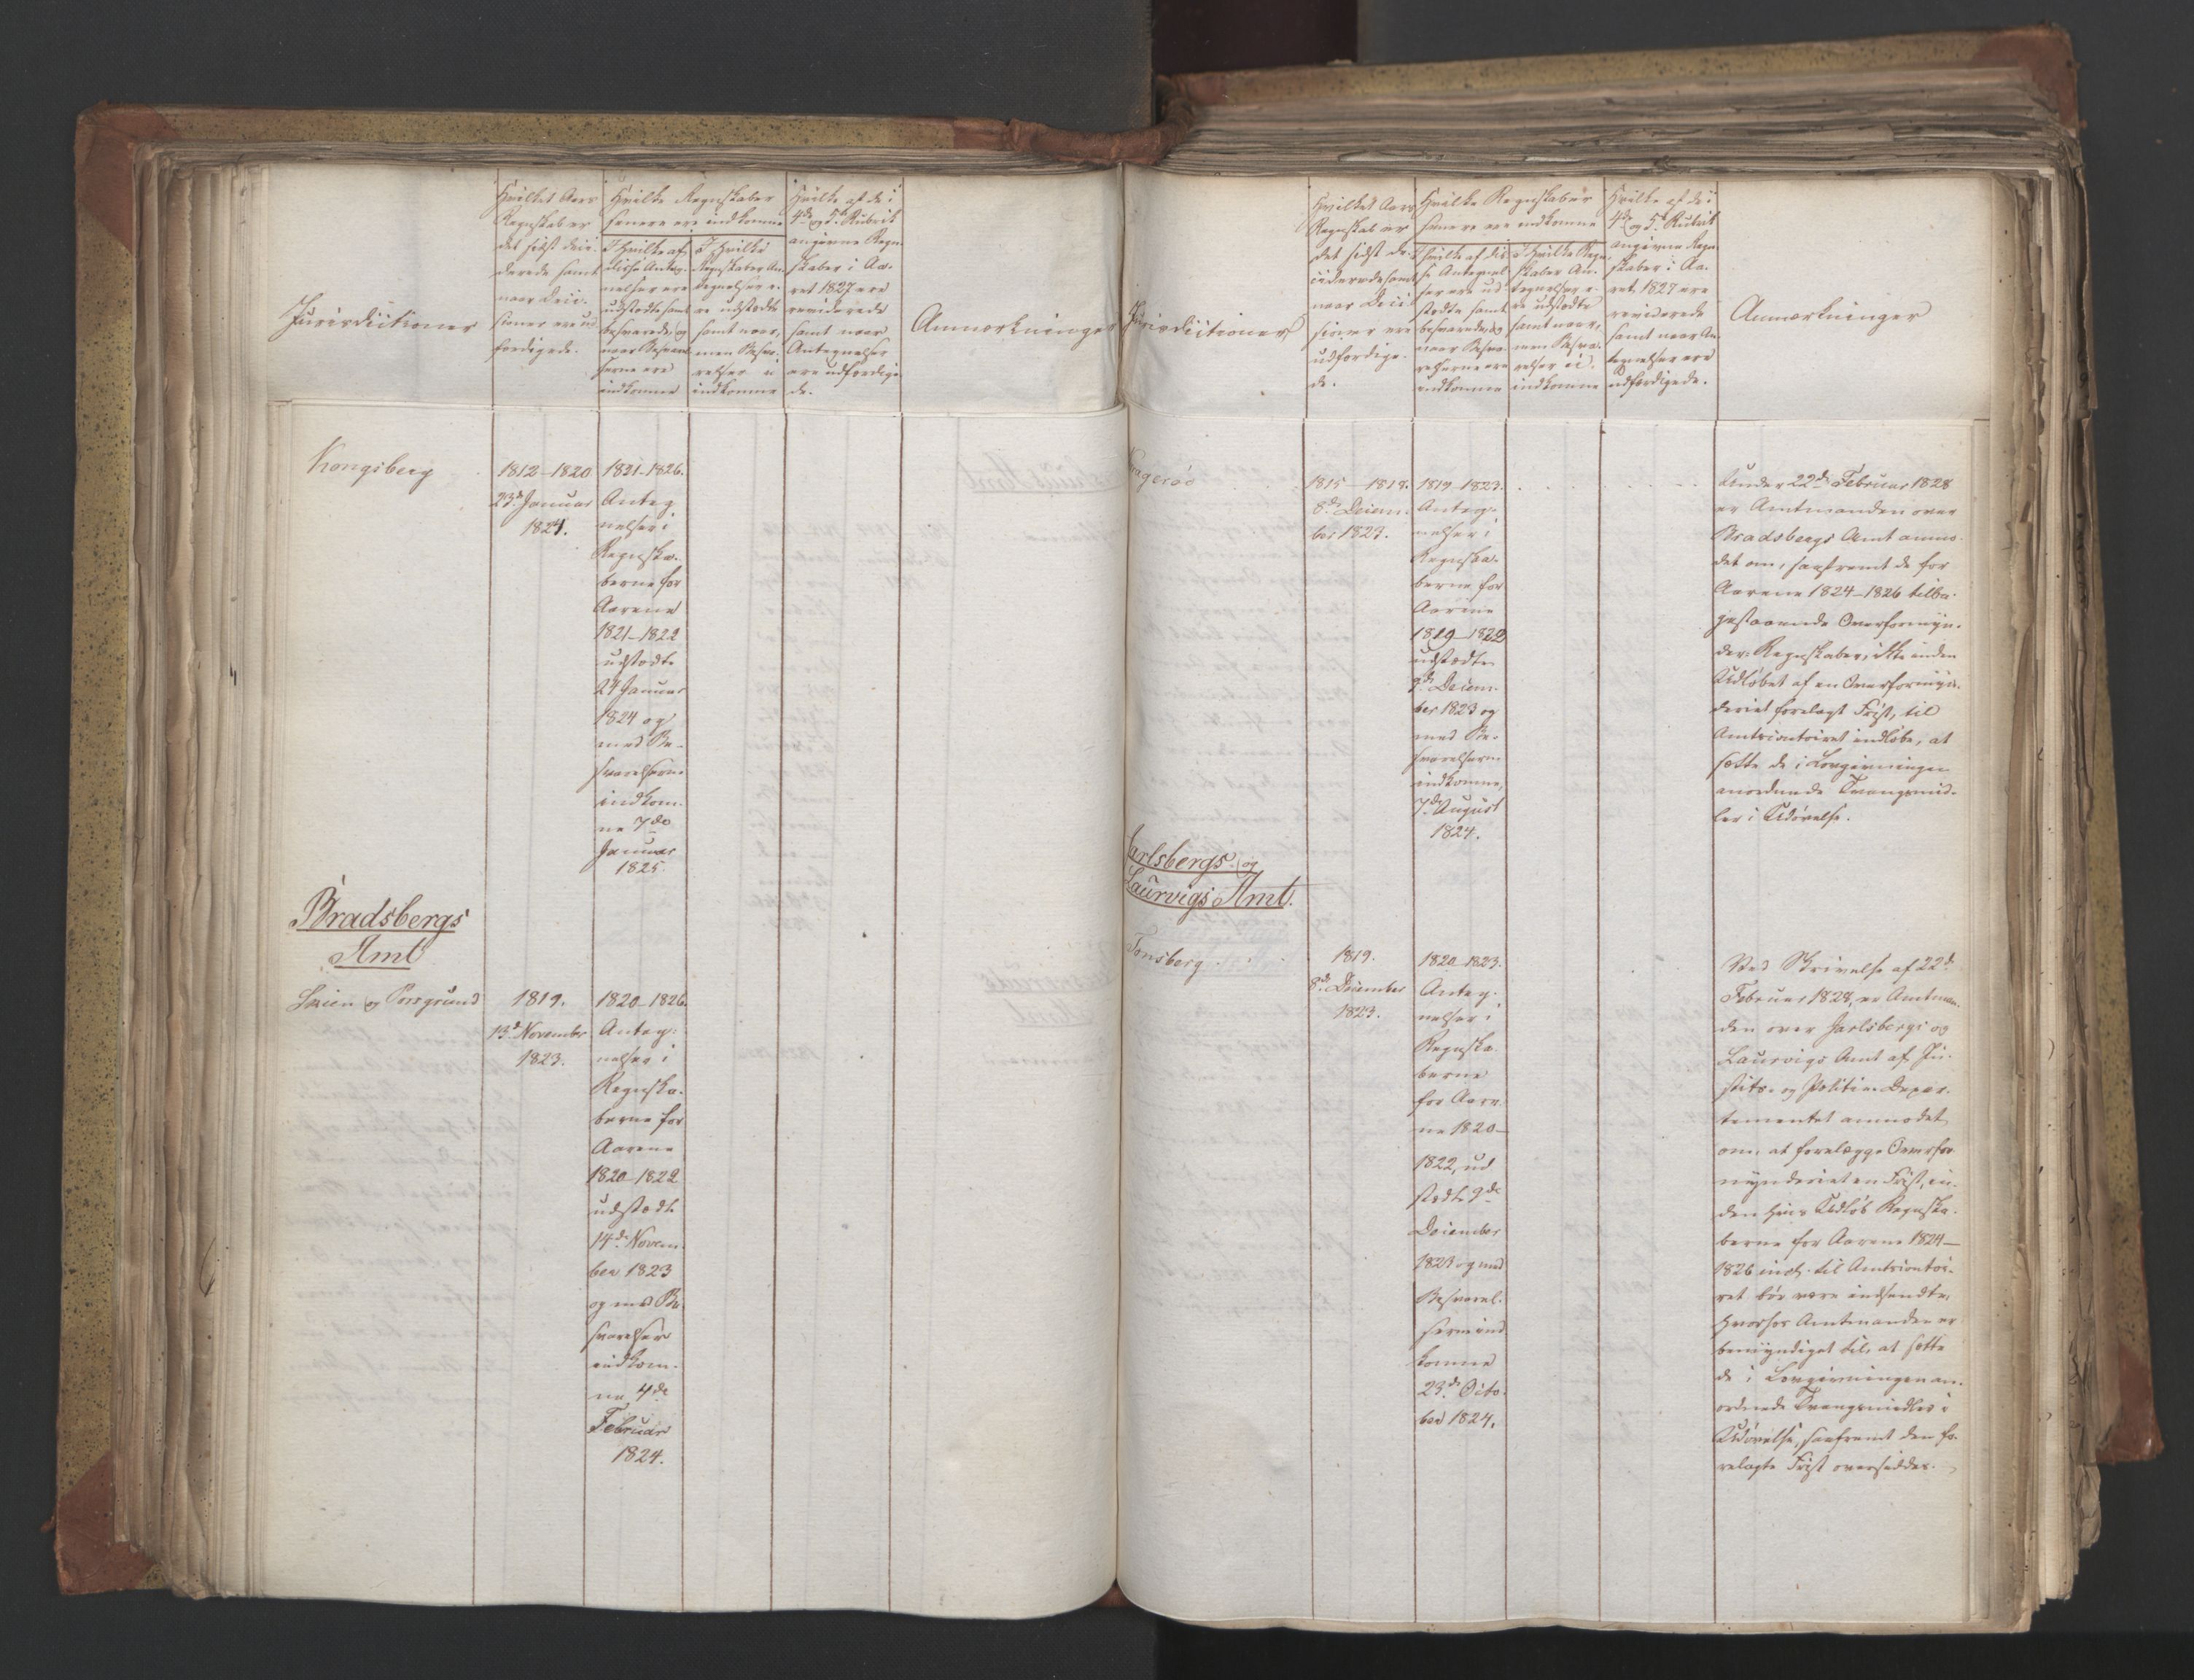 Jurisdictioner
Hvilket Aars
Regnskab er
det sidst deci-
derede samt
naar Deci-
sioner ere ud
færdigede.
Hvilke Regnskaber
senere ere indkomne
I Hvilke af
disse Anteg-
nelser ere
udstædte samt
besvarede, og
naar Besvarel-
serne ere
indkomne
I Hvilke
Regnskaber An-
tegnelser e-
re udstædte
samt naar,
men Besva-
relser ei
indkomne
Hvilke af de i
4de og 5te Rubrik
angivne Regn-
skaber i Aa-
ret 1827 ere
reviderede
samt naar
Antegnelser
ere udfærdige-
de.
Anmærkninger
Kongsberg
1812-1820
23de Januar
1824.
1821-1826.
Anteg
nelser i
Regnska-
berne for
Aarene
1821-1822
udstædte
24 Januar
1824 og
med Be-
svarelserne
indkom-
ne 7de
Januar
1825.
Bradsbergs
Amt
Skien og Porsgrund
1819.
13de November
1823.
1820-1826.
Anteg-
nelser i
Regnska-
berne for
Aarene
1820-1822
udstædt
14de Novem-
ber 1823
og med Be-
svarelser
indkom-
ne 4de
Februar
1824.
Jurisdictioner
Hvilket Aars
Regnskab er
det sidst de-
ciderede samt
naar Deci-
sioner ere
udfærdige-
de.
Hvilke Regnskaber
senere ere indkomne
I Hvilke af dis
se Antegnel
ser ere ud
stædte samt
besvarede, og
naar Besva-
relserne ere
indkomne
I Hvilke Regn-
skaber An-
tegnelser e-
re udstædte
samt naar,
men Besva-
relser ei
indkomne
Hvilke af de i
4de og 5te Rubrik
angivne Regn-
skaber i Aa-
ret 1827 ere
reviderede
samt naar An-
tegnelser ere
udfærdigede.
Anmærkninger
Kragerøe
1815-1818.
8de Decem-
ber 1823.
1819-1823.
Anteg-
nelser i
Regnska-
berne for
Aarene
1819-1822
udstædte
9de Decem-
ber 1823 og
med Be-
svarelserne
indkomne,
7de August
1824.
Under 22de Februar 1828
er Amtmanden over
Bradsbergs Amt anmo-
det om, saafremt de for
Aarene 1824-1826 tilba-
gestaaende Overformyn-
der-Regnskaber, ikke inden
Udløbet af en Overformyn-
deriet forelagt Frist, til
Amtscontoiret indløbe, at
sætte de i Lovgivningen
anordnede Tvangsmid-
ler i Udøvelse.
Jarlsbergs og
Laurvigs Amt.
Tønsberg
1819.
8de December
1823.
1820-1823.
Anteg-
nelser i
Regnska-
berne
for Aare-
ne 1820-
1822, ud
stædt 9de
December
1823 og med
Besvarel-
serne ind
komne
23de Octo-
ber 1824.
Ved Skrivelse af 22de
Februar 1828, er Amtman-
den over Jarlsbergs og
Laurvigs Amt af Ju-
stits- og Politie-Depar-
tementet anmodet
om, at forelægge Overfor
mynderiet en Frist, in-
den hvis Udløb Regnska-
berne for Aarene 1824-
1826 incl. til Amtscontoi-
ret bør være indsendte,
hvorhos Amtmanden er
bemyndiget til, at sætte
de i Lovgivningen an-
ordnede Tvangsmidler i
Udøvelse, saafremt den fo-
relagte Frist oversiddes.